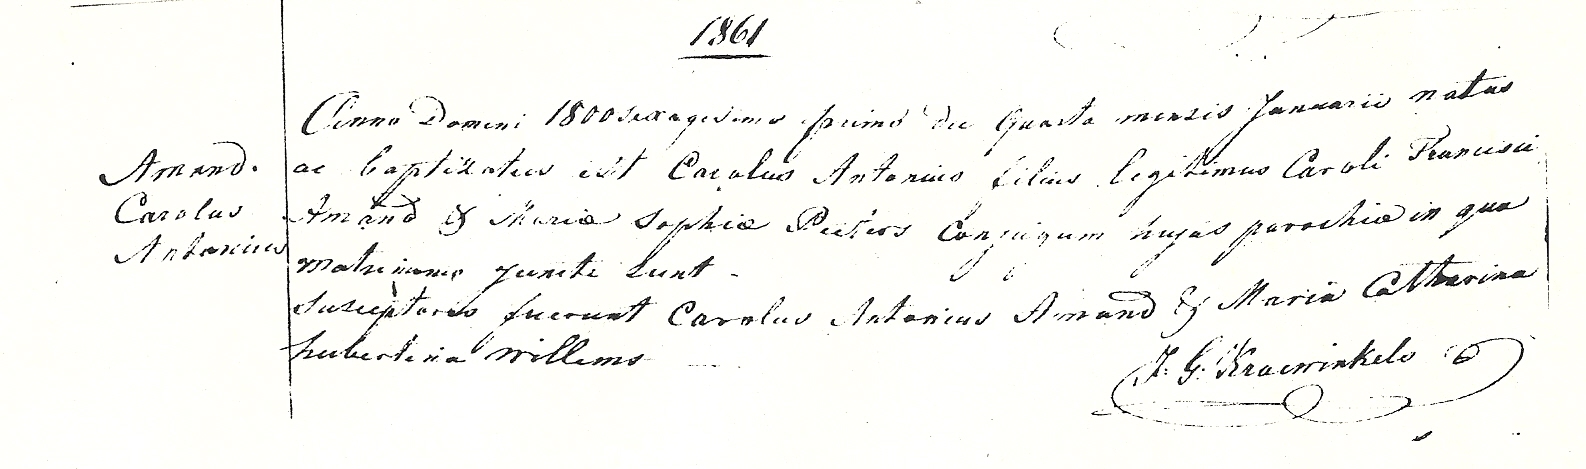 1861
Anno Domini 1800 sexagesimo primo die Quarta mensis Januarii natus
Amand.
ac baptizatus est Carolus Antonius filius legitimus Caroli Francisci
Carolus
Amand & Mariæ Sophiæ Peeters Conjugum hujus parochiæ in qua
Antonius
Matrimonio juncti sunt -
Susceptores fuerunt Carolus Antonius Amand & Maria Catharina
hubertina Willems
J. G. Kraewinkels